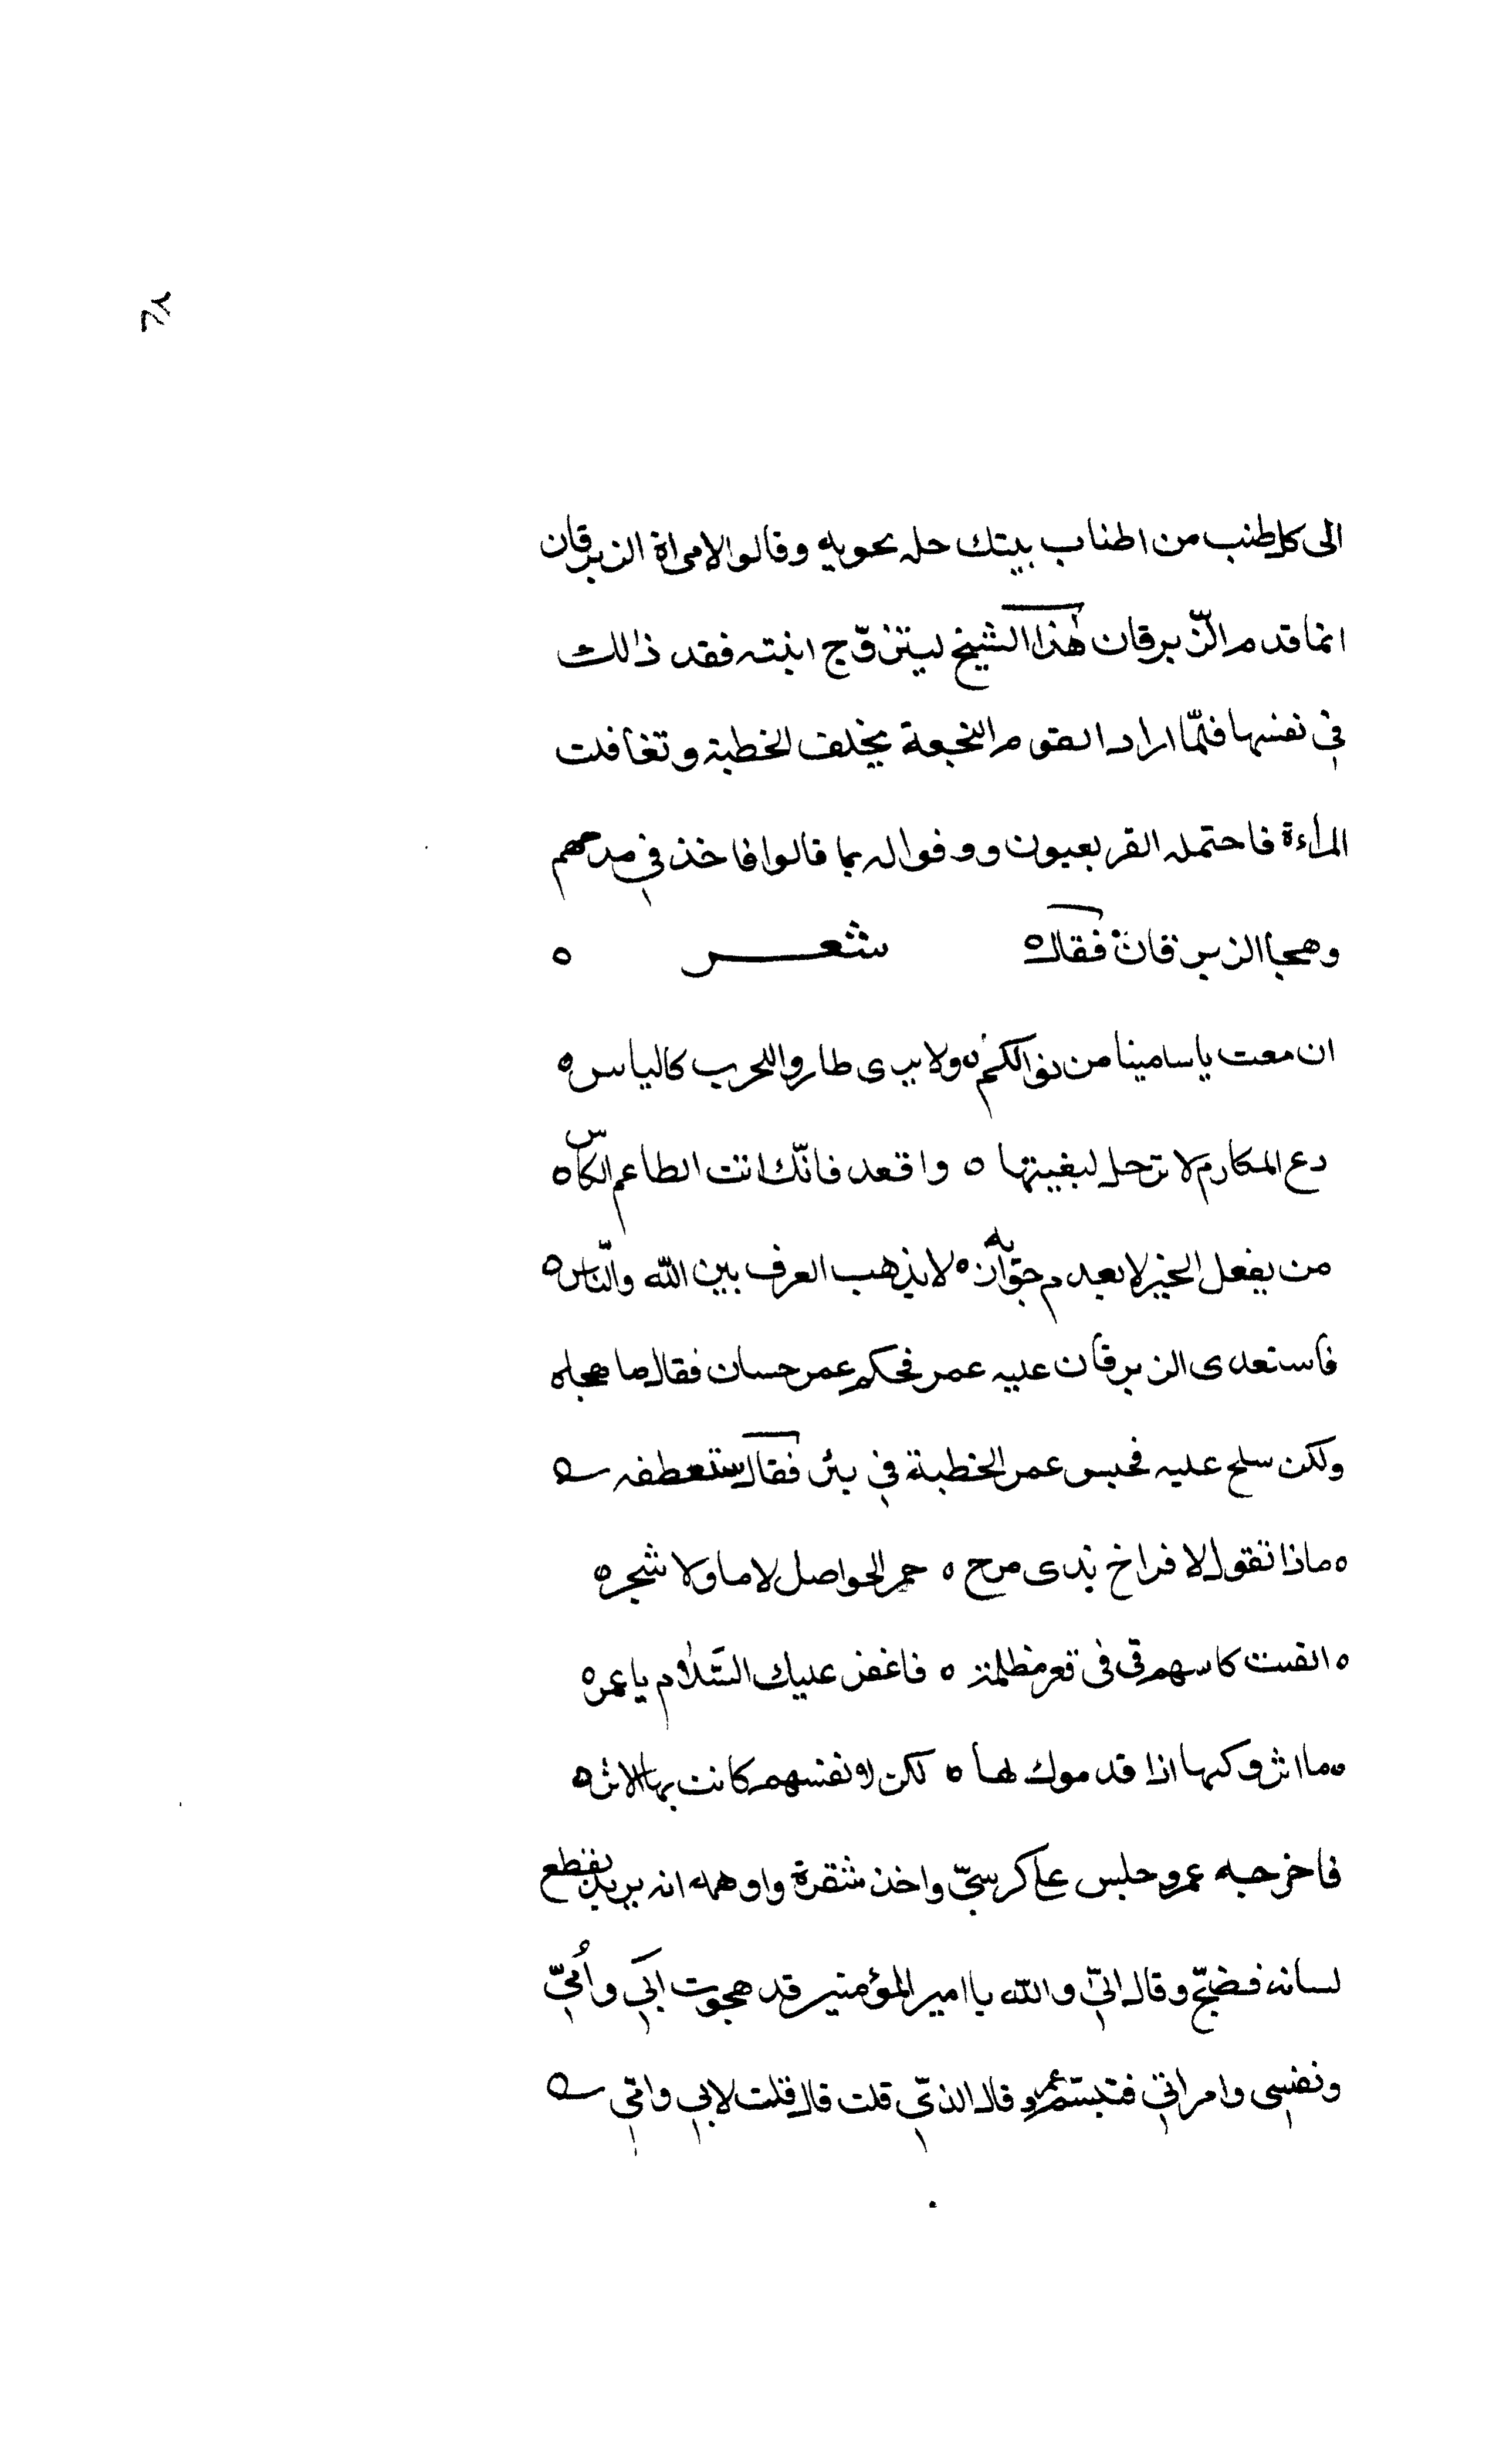 الى كل طنب من اطناب بيتك حله بحويه وقالوا لامراة الزبرقان
انما قدم الزّبرقان هٰذا الشيخ ليتزوّج ابنته فقد ذالك
في نفسها فلمّا اراد القوم النجعة يخلف الخطبة وتغافلت
المراءة فاحتمله القريعيون ووفوا له بما قالوا فاخذ في مدحهم
وهجا الزبرقان فقال شعر
ان معت ياسا مينا من نوالكم ولا يرى طاروا للحرب كالياس
دع المكارم لا ترحل لبغيتها واقعد فانّك انت الطاعم الكاس
من يفعل الخير لا يعدم جوازيه لا يذهب العرف بين الله والنّاس
فاستعدى الزبرقان عليه عمر فحكم عمر حسان فقال ما هجاه
ولكن سلح عليه فحبس عمر الخطبة في بئر فقال ستعطفه
ماذا تقول لا فراخ بذى مرح حمر الحواصل لا ما ولا شجر
القيت كاسهم في قعر مظلمة فاغفر عليك السّلام يا عمر
ما اثروك بها اذا قدموك لها لكن لانفسهم كانت بها الاثر
فاخرجه عمر وجلس على كرسيّ واخذ شقرة واوهمه انه يريد يقطع
لسانه فضجّ وقال انّي والله يا امير المؤمنير قد هجوت ابي وأمّي
ونفسي وامراتي فتبسّم عمر وقال الذي قلت قال قلت لابي وامّي